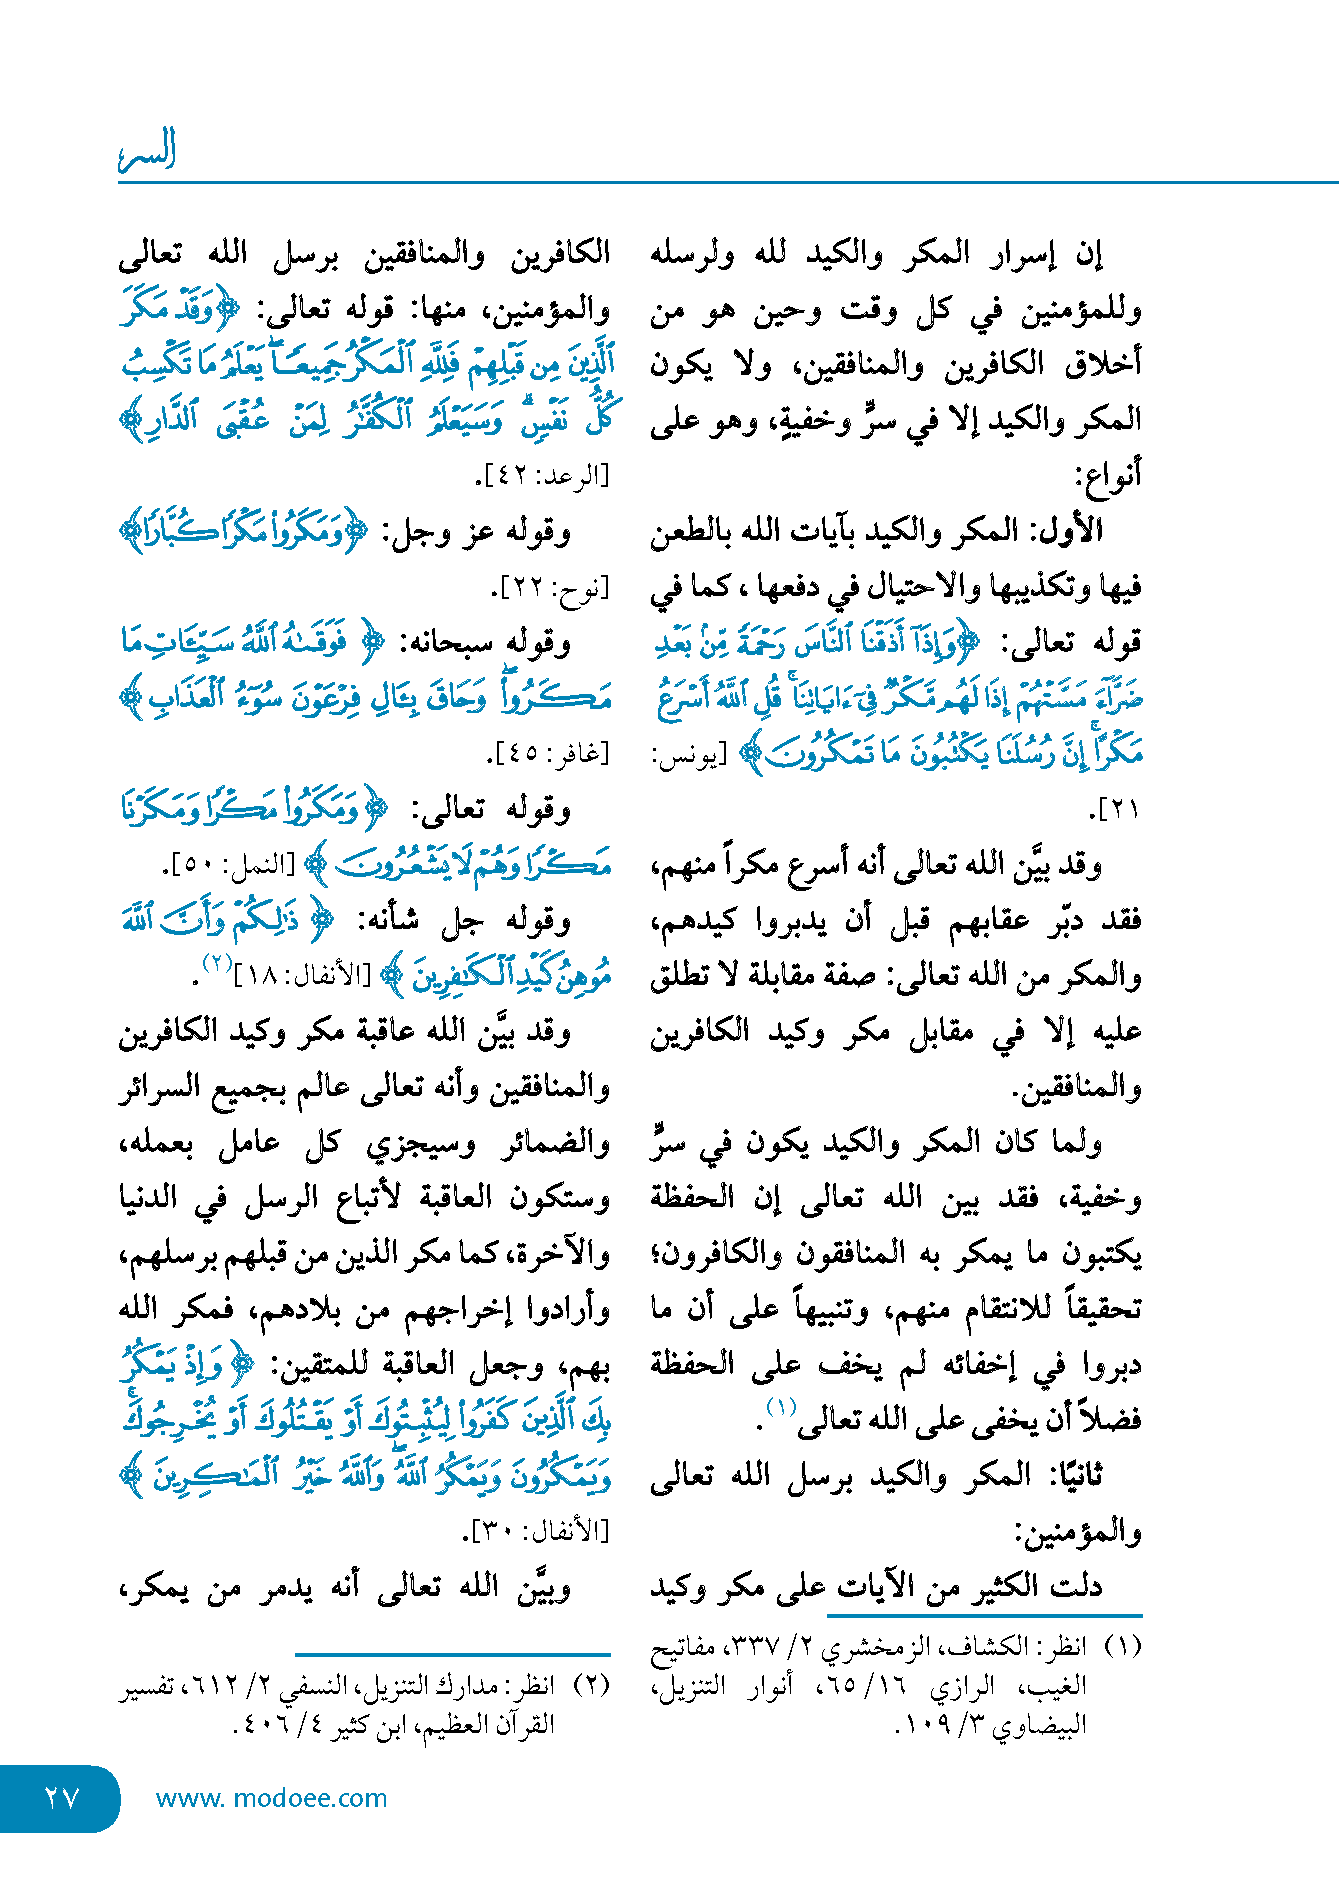 السر
إن إسرار المكر والكيد لله ولرسله
وللمؤمنين في كل وقت وحين هو من
أخلاق الكافرين والمنافقين، ولا يكون
المكر والكيد إلا في سرٍّ وخفيةٍ، وهو على
أنواع:
الأول: المكر والكيد بآيات الله بالطعن
فيها وتكذيبها والاحتيال في دفعها ، كما في
قوله تعالى: ﴿وَإِذَآ أَذَقْنَا ٱلنَّاسَ رَحْمَةً مِّنۢ بَعْدِ
ضَرَّآءَ مَسَّتْهُمْ إِذَا لَهُم مَّكْرٌ فِىٓ ءَايَاتِنَا ۚ قُلِ ٱللَّهُ أَسْرَعُ
مَكْرًا ۚ إِنَّ رُسُلَنَا يَكْتُبُونَ مَا تَمْكُرُونَ﴾ [يونس:
٢١].
وقد بيَّن الله تعالى أنه أسرع مكراً منهم،
فقد دبّر عقابهم قبل أن يدبروا كيدهم،
والمكر من الله تعالى: صفة مقابلة لا تطلق
عليه إلا في مقابل مكر وكيد الكافرين
والمنافقين.
ولما كان المكر والكيد يكون في سرٍّ
وخفية، فقد بين الله تعالى إن الحفظة
يكتبون ما يمكر به المنافقون والكافرون؛
تحقيقاً للانتقام منهم، وتنبيهاً على أن ما
دبروا في إخفائه لم يخف على الحفظة
فضلاً أن يخفى على الله تعالى(١).
ثانيًا: المكر والكيد برسل الله تعالى
والمؤمنين:
دلت الكثير من الآيات على مكر وكيد
(١) انظر: الكشاف، الزمخشري ٢/ ٣٣٧، مفاتيح
الغيب، الرازي ١٦/ ٦٥، أنوار التنزيل،
البيضاوي ٣/ ١٠٩.
الكافرين والمنافقين برسل الله تعالى
والمؤمنين، منها: قوله تعالى: ﴿وَقَدْ مَكَرَ
ٱلَّذِينَ مِن قَبْلِهِمْ فَلِلَّهِ ٱلْمَكْرُ جَمِيعًا ۖ يَعْلَمُ مَا تَكْسِبُ
كُلُّ نَفْسٍ ۗ وَسَيَعْلَمُ ٱلْكُفَّـٰرُ لِمَنْ عُقْبَى ٱلدَّارِ﴾
[الرعد: ٤٢].
وقوله عز وجل: ﴿وَمَكَرُوا۟ مَكْرًا كُبَّارًا﴾
[نوح: ٢٢].
وقوله سبحانه: ﴿ فَوَقَىٰهُ ٱللَّهُ سَيِّـَٔاتِ مَا
مَكَرُوا۟ ۖ وَحَاقَ بِـَٔالِ فِرْعَوْنَ سُوٓءُ ٱلْعَذَابِ ﴾
[غافر: ٤٥].
وقوله تعالى: ﴿ وَمَكَرُوا۟ مَكْرًا وَمَكَرْنَا
مَكْرًا وَهُمْ لَا يَشْعُرُونَ ﴾ [النمل: ٥٠].
وقوله جل شأنه: ﴿ ذَٰلِكُمْ وَأَنَّ ٱللَّهَ
مُوهِنُ كَيْدِ ٱلْكَـٰفِرِينَ ﴾ [الأنفال: ١٨](٢).
وقد بيَّن الله عاقبة مكر وكيد الكافرين
والمنافقين وأنه تعالى عالم بجميع السرائر
والضمائر وسيجزي كل عامل بعمله،
وستكون العاقبة لأتباع الرسل في الدنيا
والآخرة، كما مكر الذين من قبلهم برسلهم،
وأرادوا إخراجهم من بلادهم، فمكر الله
بهم، وجعل العاقبة للمتقين: ﴿ وَإِذْ يَمْكُرُ
بِكَ ٱلَّذِينَ كَفَرُوا۟ لِيُثْبِتُوكَ أَوْ يَقْتُلُوكَ أَوْ يُخْرِجُوكَ ۚ
وَيَمْكُرُونَ وَيَمْكُرُ ٱللَّهُ ۖ وَٱللَّهُ خَيْرُ ٱلْمَـٰكِرِينَ ﴾
[الأنفال: ٣٠].
وبيَّن الله تعالى أنه يدمر من يمكر،
(٢) انظر: مدارك التنزيل، النسفي ٢/ ٦١٢، تفسير
القرآن العظيم، ابن كثير ٤/ ٤٠٦.
٢٧
www. modoee.com